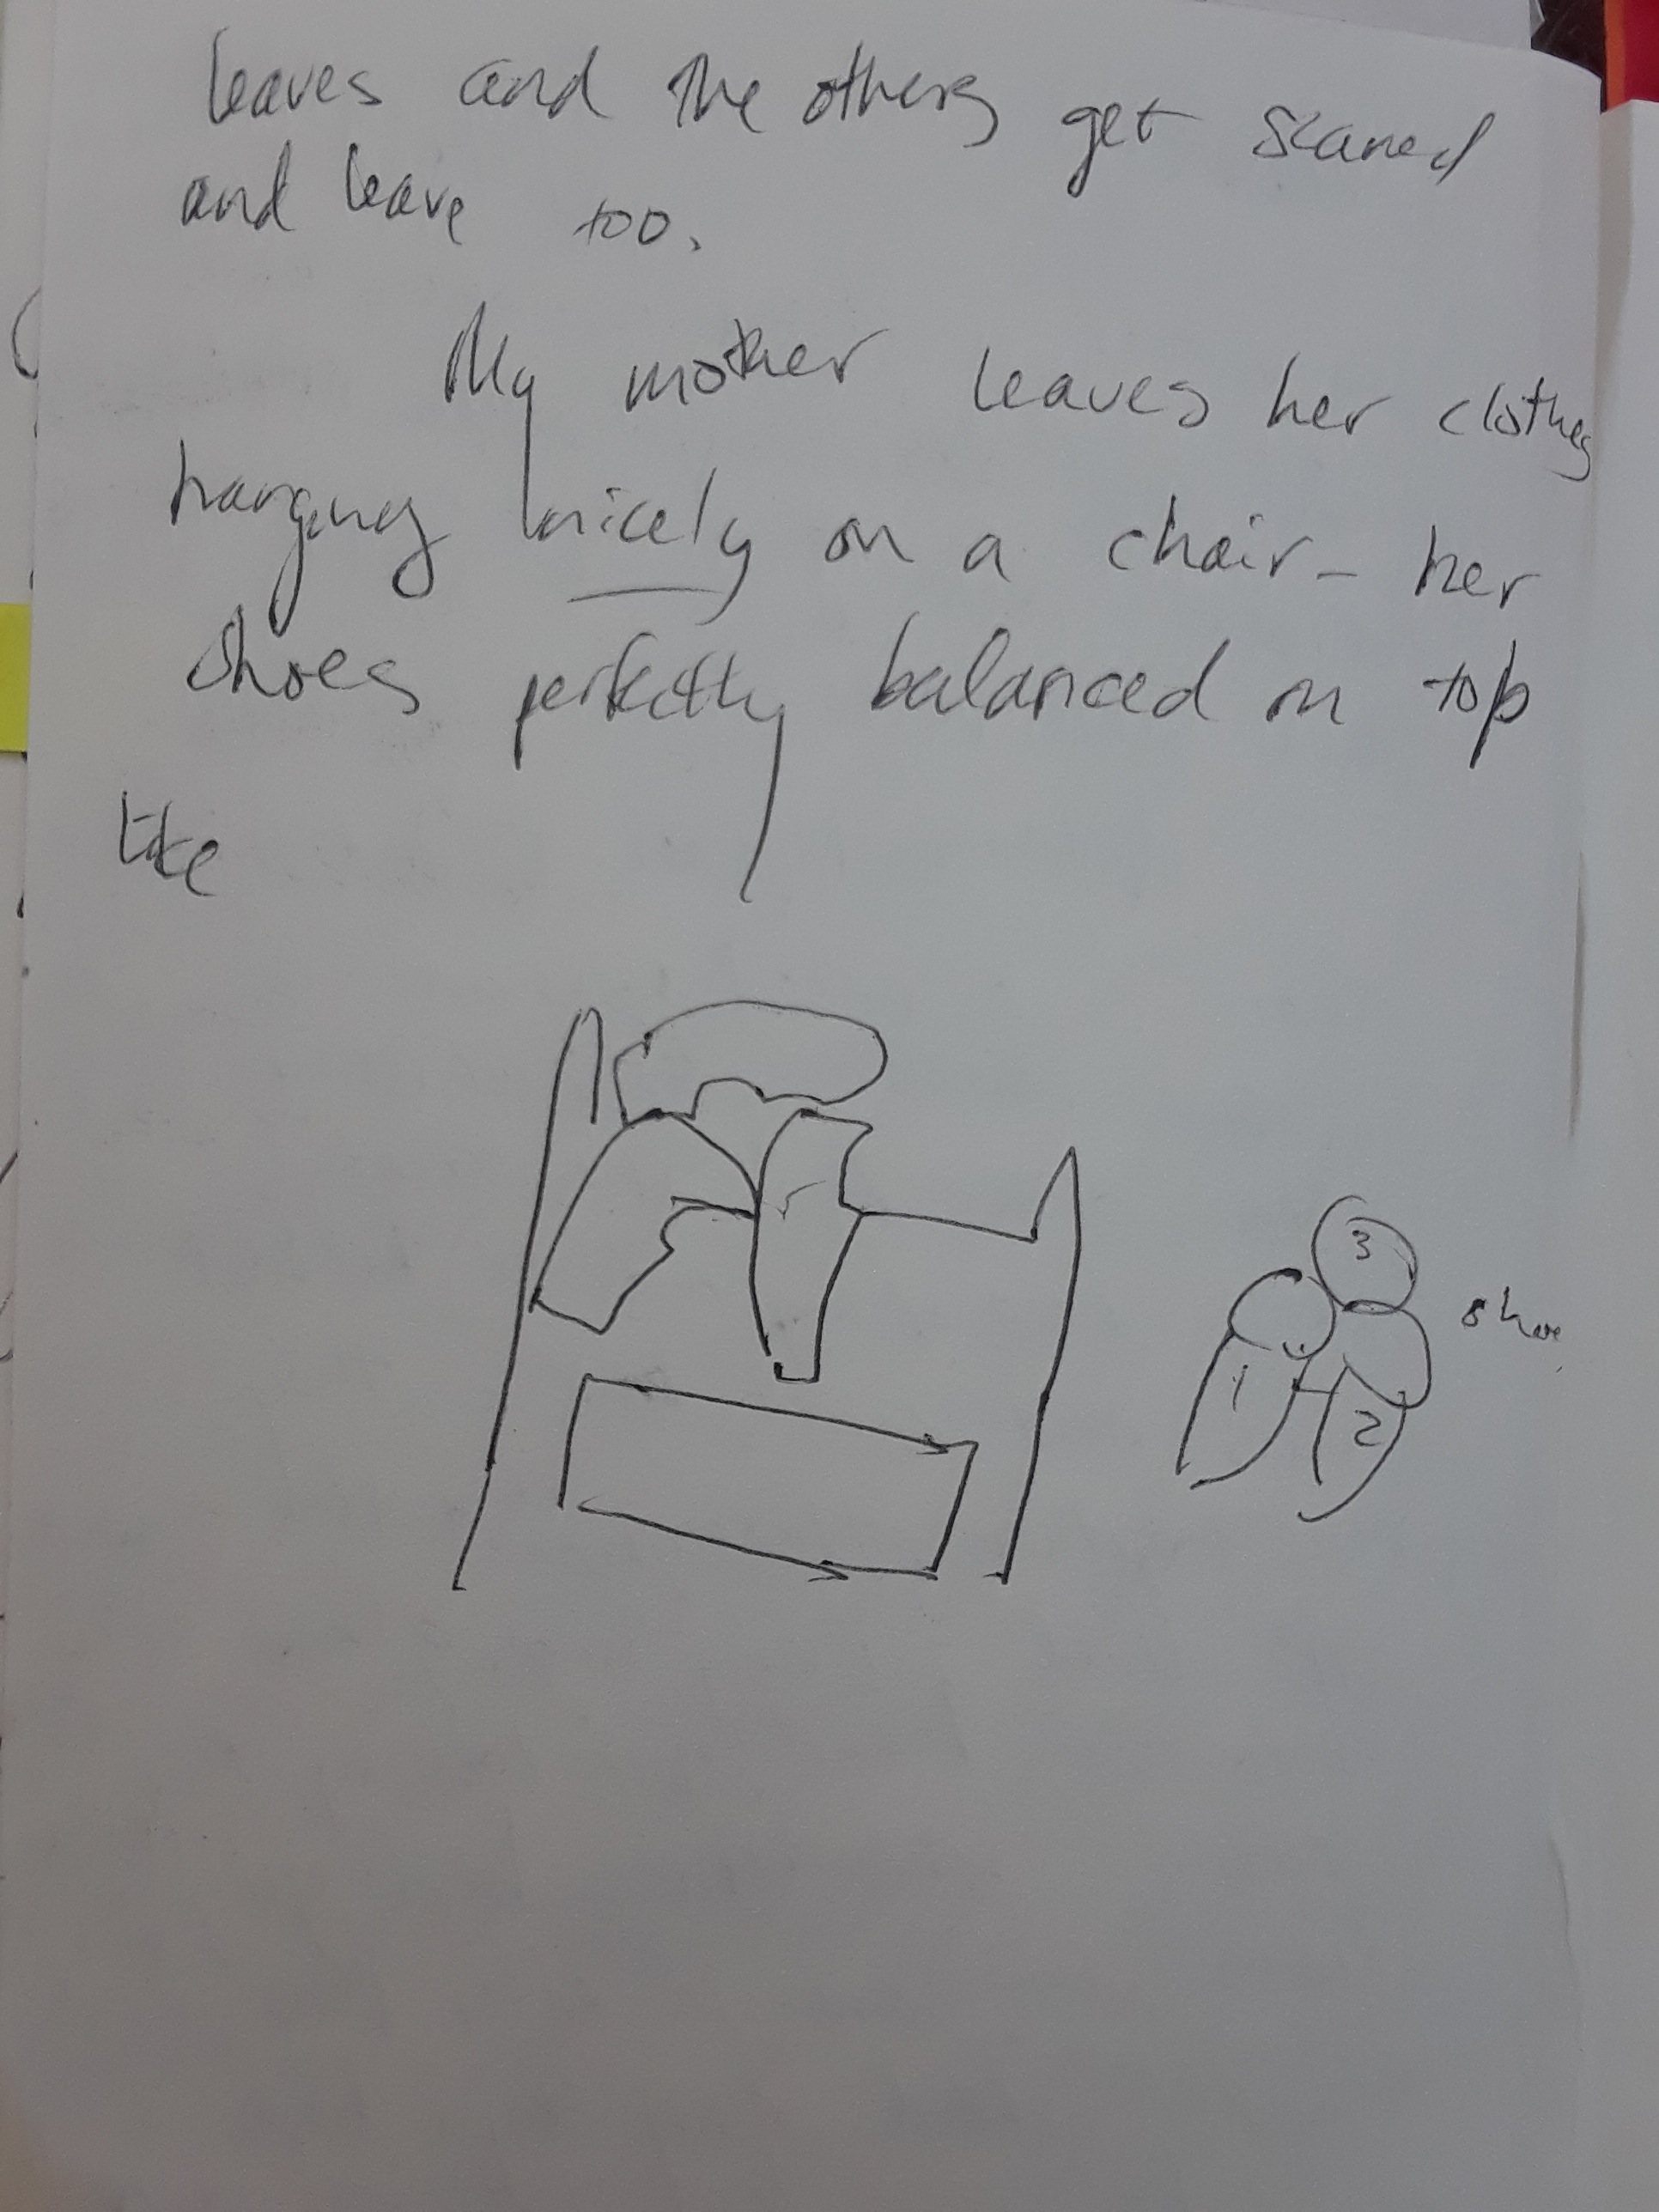 leaves and the others get scared
and leave too.
My mother leaves her clothes
hanging nicely on a chair - her
shoes perfectly balanced on top
like
3
shoe
1
2